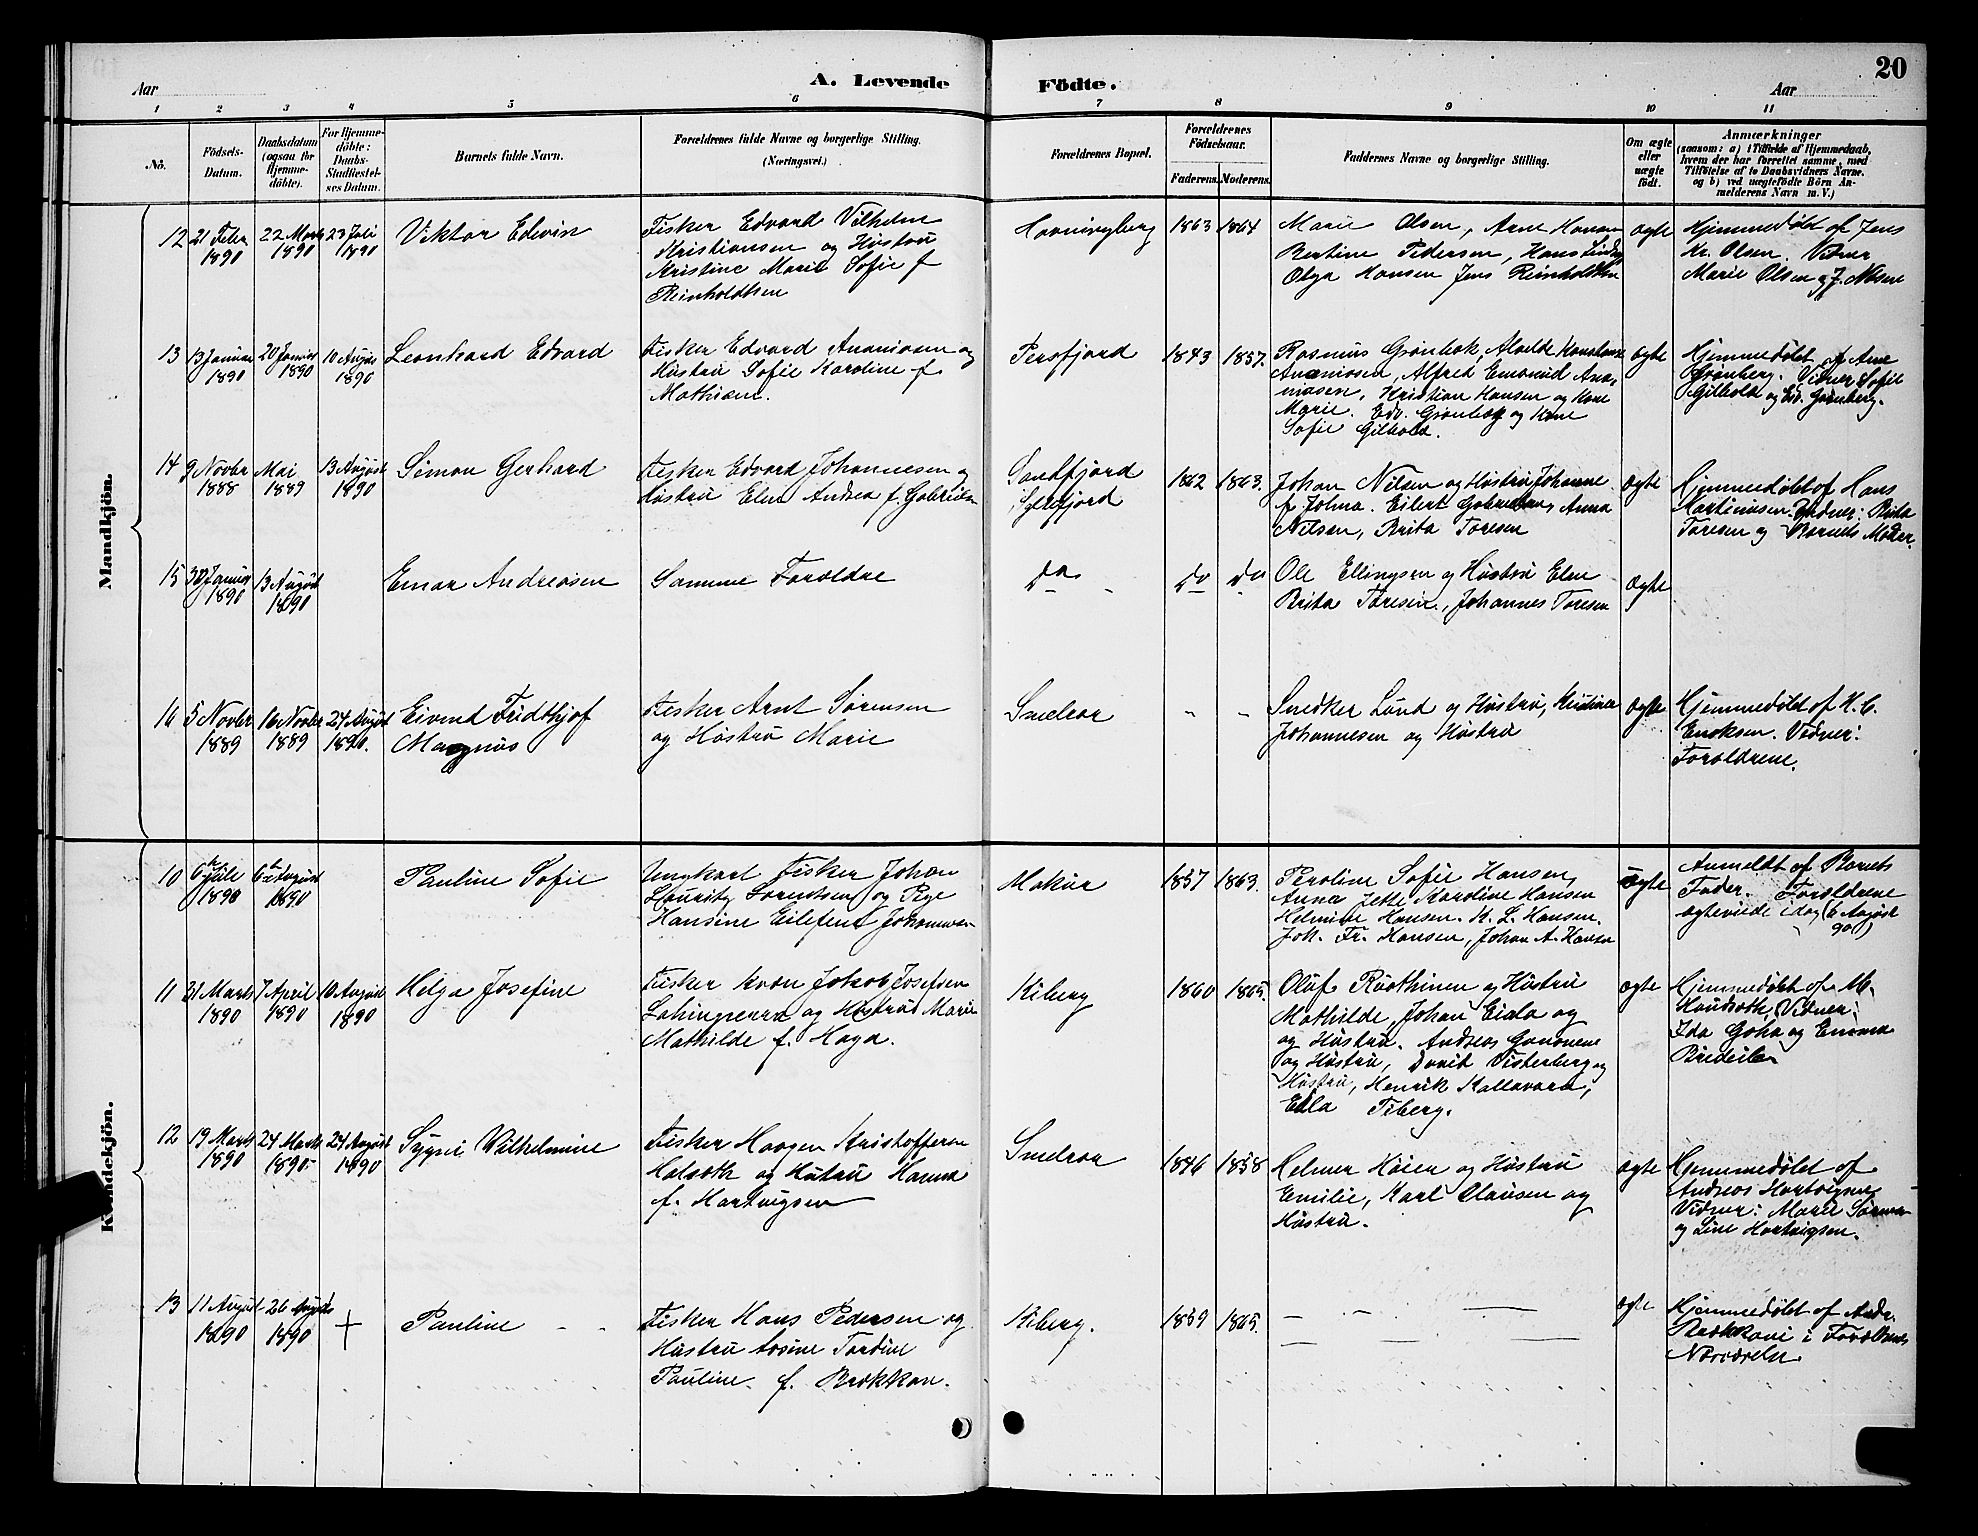 20
A. Levende Födte.
Aar
Aar
1 2 3 4 5 6 7 8 9 10 11
No.
Födsels-Datum.
Daabsdatum (ogsaa for Hjemmedöbte).
For Hjemmedöbte: Daabs-Stadfæstelses Datum.
Barnets fulde Navn.
Forældrenes fulde Navne og borgerlige Stilling. (Næringsvei.)
Forældrenes Bopæl.
Forældrenes Födselsaar.
Faderens. Moderens.
Faddernes Navne og borgerlige Stilling.
Om ægte eller uægte födt.
Anmærkninger
(saasom: a) i Tilfælde af Hjemmedaab, hvem der har forrettet samme, med Tilföielse af to Daabsvidners Navne. og b) ved uægtefödte Börn Anmelderens Navn m. V.)
Mandkjön.
12 21 Febr 1890 22 Marts 1890 23 Juli 1890 Viktor Edevin
Fisker Edvard Vilhelm
Kristiansen og Hustru
Kristine Marie Sofie f
Reinholdtsen
1863 1864
Marie Olsen, Arne Hansen
Bertine Pedersen, Hans
Olga Hansen Jens Reinholdtsen
ægte
Hjemmedøbt af Jens
Kr. Olsen. Vidner
Marie Olsen og J.
13 13 Januar 1890 20 Januar 1890 10 August 1890 Leonhard Edvard
Fisker Edvard Ananiasen og
Hustru Sofie Karoline f
Mathisen.
Persfjord 1843 1857.
Rasmus Grønbek,
Ananiasen, Alfred
Kristian Hansen og Kone
Marie. Edv. Grønbek og Kone
Sofie
ægte
Hjemmedøbt af Arne
Grønberg. Vidner Sofie
og Edv. Grønberg.
14 9 Novbr 1888 Mai 1889 13 August 1890 Simon Gerhard
Fisker Edvard Johannesen og
Hustru Elen Andrea f. Gabrielsen
Sandfjord
Syltefjord
1862 1863.
Johan Nilsen og Hustru Johanne
f Johna. Eilert Gabrielsen, Anna
Nilsen, Brita Toresen
ægte
Hjemmedøbt af Hans
Martinusen. Vidner: Brita
Toresen og Barnets Moder.
15 30 Januar 1890 13 August 1890 Einar Andreasen
Samme Forældre
Do Do Do
Ole Ellingsen og Hustru Elen
Brita Toresen, Johannes Toresen
ægte
16 5 Novbr 1889 16 Novbr 1889 24 August 1890. Eivind Fridthjof
Magnus
Fisker Arnt Sørensen
og Hustru Marie
Smelror " "
Snedker Lund og Hustru, Kristine
Johannesen og Hustru
ægte
Hjemmedøbt af H. C.
Eriksen. Vidner:
Forældrene.
Kvindekjön.
10 6te Juli 1890 6te August 1890 Pauline Sofie
Ungkarl Fisker Johan
Lauritz Lorentsen og Pige
Hansine Johannesen
Makur 1857 1863.
Peroline Sofie Hansen
Anna Jette Karoline Hansen
Helmine Hansen. H. L. Hansen.
Joh. Fr. Hansen, Johan A. Hansen
ægte
Anmeldt af Barnets
Fader. Forældrene
ægteviede idag (6 August
90)
11 31 Marts 1890 7 April 1890 10 August 1890 Helga Josefine
Fisker kvæn Jakob Josefsen
og Hustru Marie
Mathilde f. Haga.
Kiberg 1860 1865.
Oluf og Hustru
Mathilde, Johan Eiala og
og Hustru. Andreas
og Hustru, David Vesterberg og
Hustru, Henrik Kallavara,
Eila Tiberg.
ægte
Hjemmedøbt af M.
Vidner:
Ida og Emma
12 19 Marts 1890 24 Marts 1890 24 August 1890 Signi Vilhelmine
Fisker Haagen Kristoffersen
og Hustru Hanna
f. Hartvigsen
Smelror 1846 1858
Helmer Høier og Hustru
Emilie, Karl Clausen og
Hustru.
ægte
Hjemmedøbt af
Andreas Hartvigsen
Vidner: Marie Sørensen
og Line Hartvigsen.
13 11 August 1890 26 August 1890 + Pauline
Fisker Hans Pedersen og
Hustru Tordine
Pauline f. Brækkan.
Kiberg. 1859 1865.
ægte
Hjemmedøbt af Andr.
i Forældrenes
Nærværelse